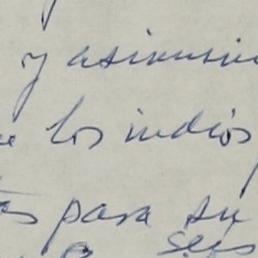 y asimismo
los indios
para su
seis